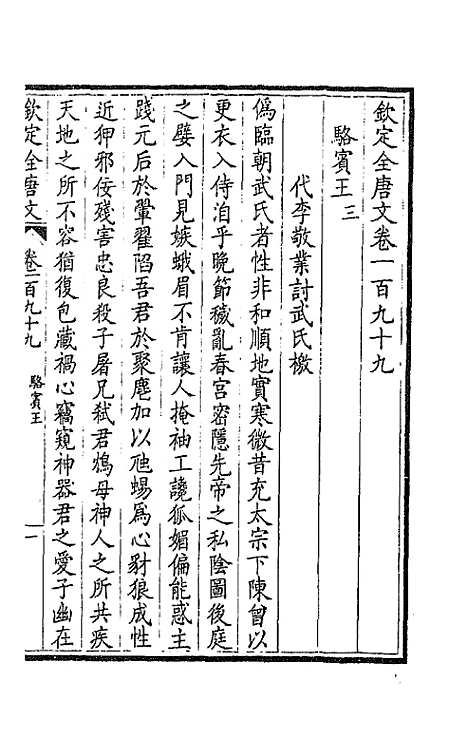 欽定全唐文卷一百九十九
駱賓王三
代李敬業討武氏檄
僞臨朝武氏者性非和順地實寒微昔充太宗下陳曾以
更衣入侍洎乎晚節穢亂春宮密隱先帝之私陰圖後庭
之嬖入門見嫉蛾眉不肯讓人掩袖工讒狐媚偏能惑主
踐元后於翬翟陷吾君於聚麀加以虺蜴爲心豺狼成性
近狎邪佞殘害忠良殺子屠兄弑君鴆母神人之所共疾
天地之所不容猶復包藏禍心竊窺神器君之愛子幽在
欽定全唐文
卷一百九十九
駱賓王
一